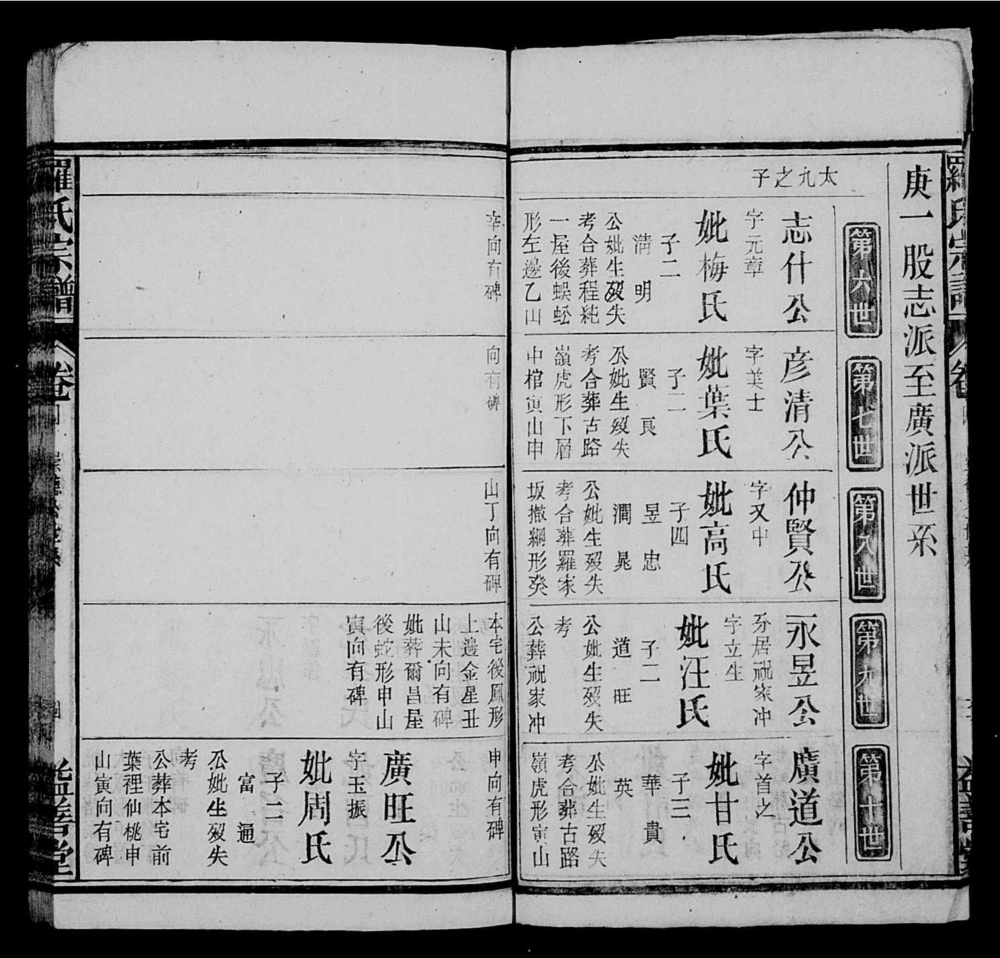 羅氏宗譜
卷
益善堂
庚一股志派至廣派世系
第六世
第七世
第八世
第九世
第十世
太九之子
志什公
字元章
妣梅氏
子二
淸 明
公妣生歿失
考合葬程純
一屋後蜈蚣
形左邊乙山
辛向有碑
彥清公
字美士
妣葉氏
子二
賢 良
公妣生歿失
考合葬古路
嶺虎形下層
中棺寅山申
向有碑
仲賢公
字又中
妣高氏
子四
昱 忠
潤 晃
公妣生歿失
考合葬羅家
坂撒網形癸
山丁向有碑
永昱公
分居祝家冲
字立生
妣汪氏
子二
道 旺
公妣生歿失
考
公葬祝家冲
本宅後鳳形
上邊金星丑
山未向有碑
妣葬爾昌屋
後蛇形申山
寅向有碑
廣道公
字首之
妣甘氏
子三
華 貴
英
公妣生歿失
考合葬古路
嶺虎形寅山
申向有碑
廣旺公
字玉振
妣周氏
子二
富 通
公妣生歿失
考
公葬本宅前
葉裡仙桃申
山寅向有碑
羅氏宗譜
卷
益善堂